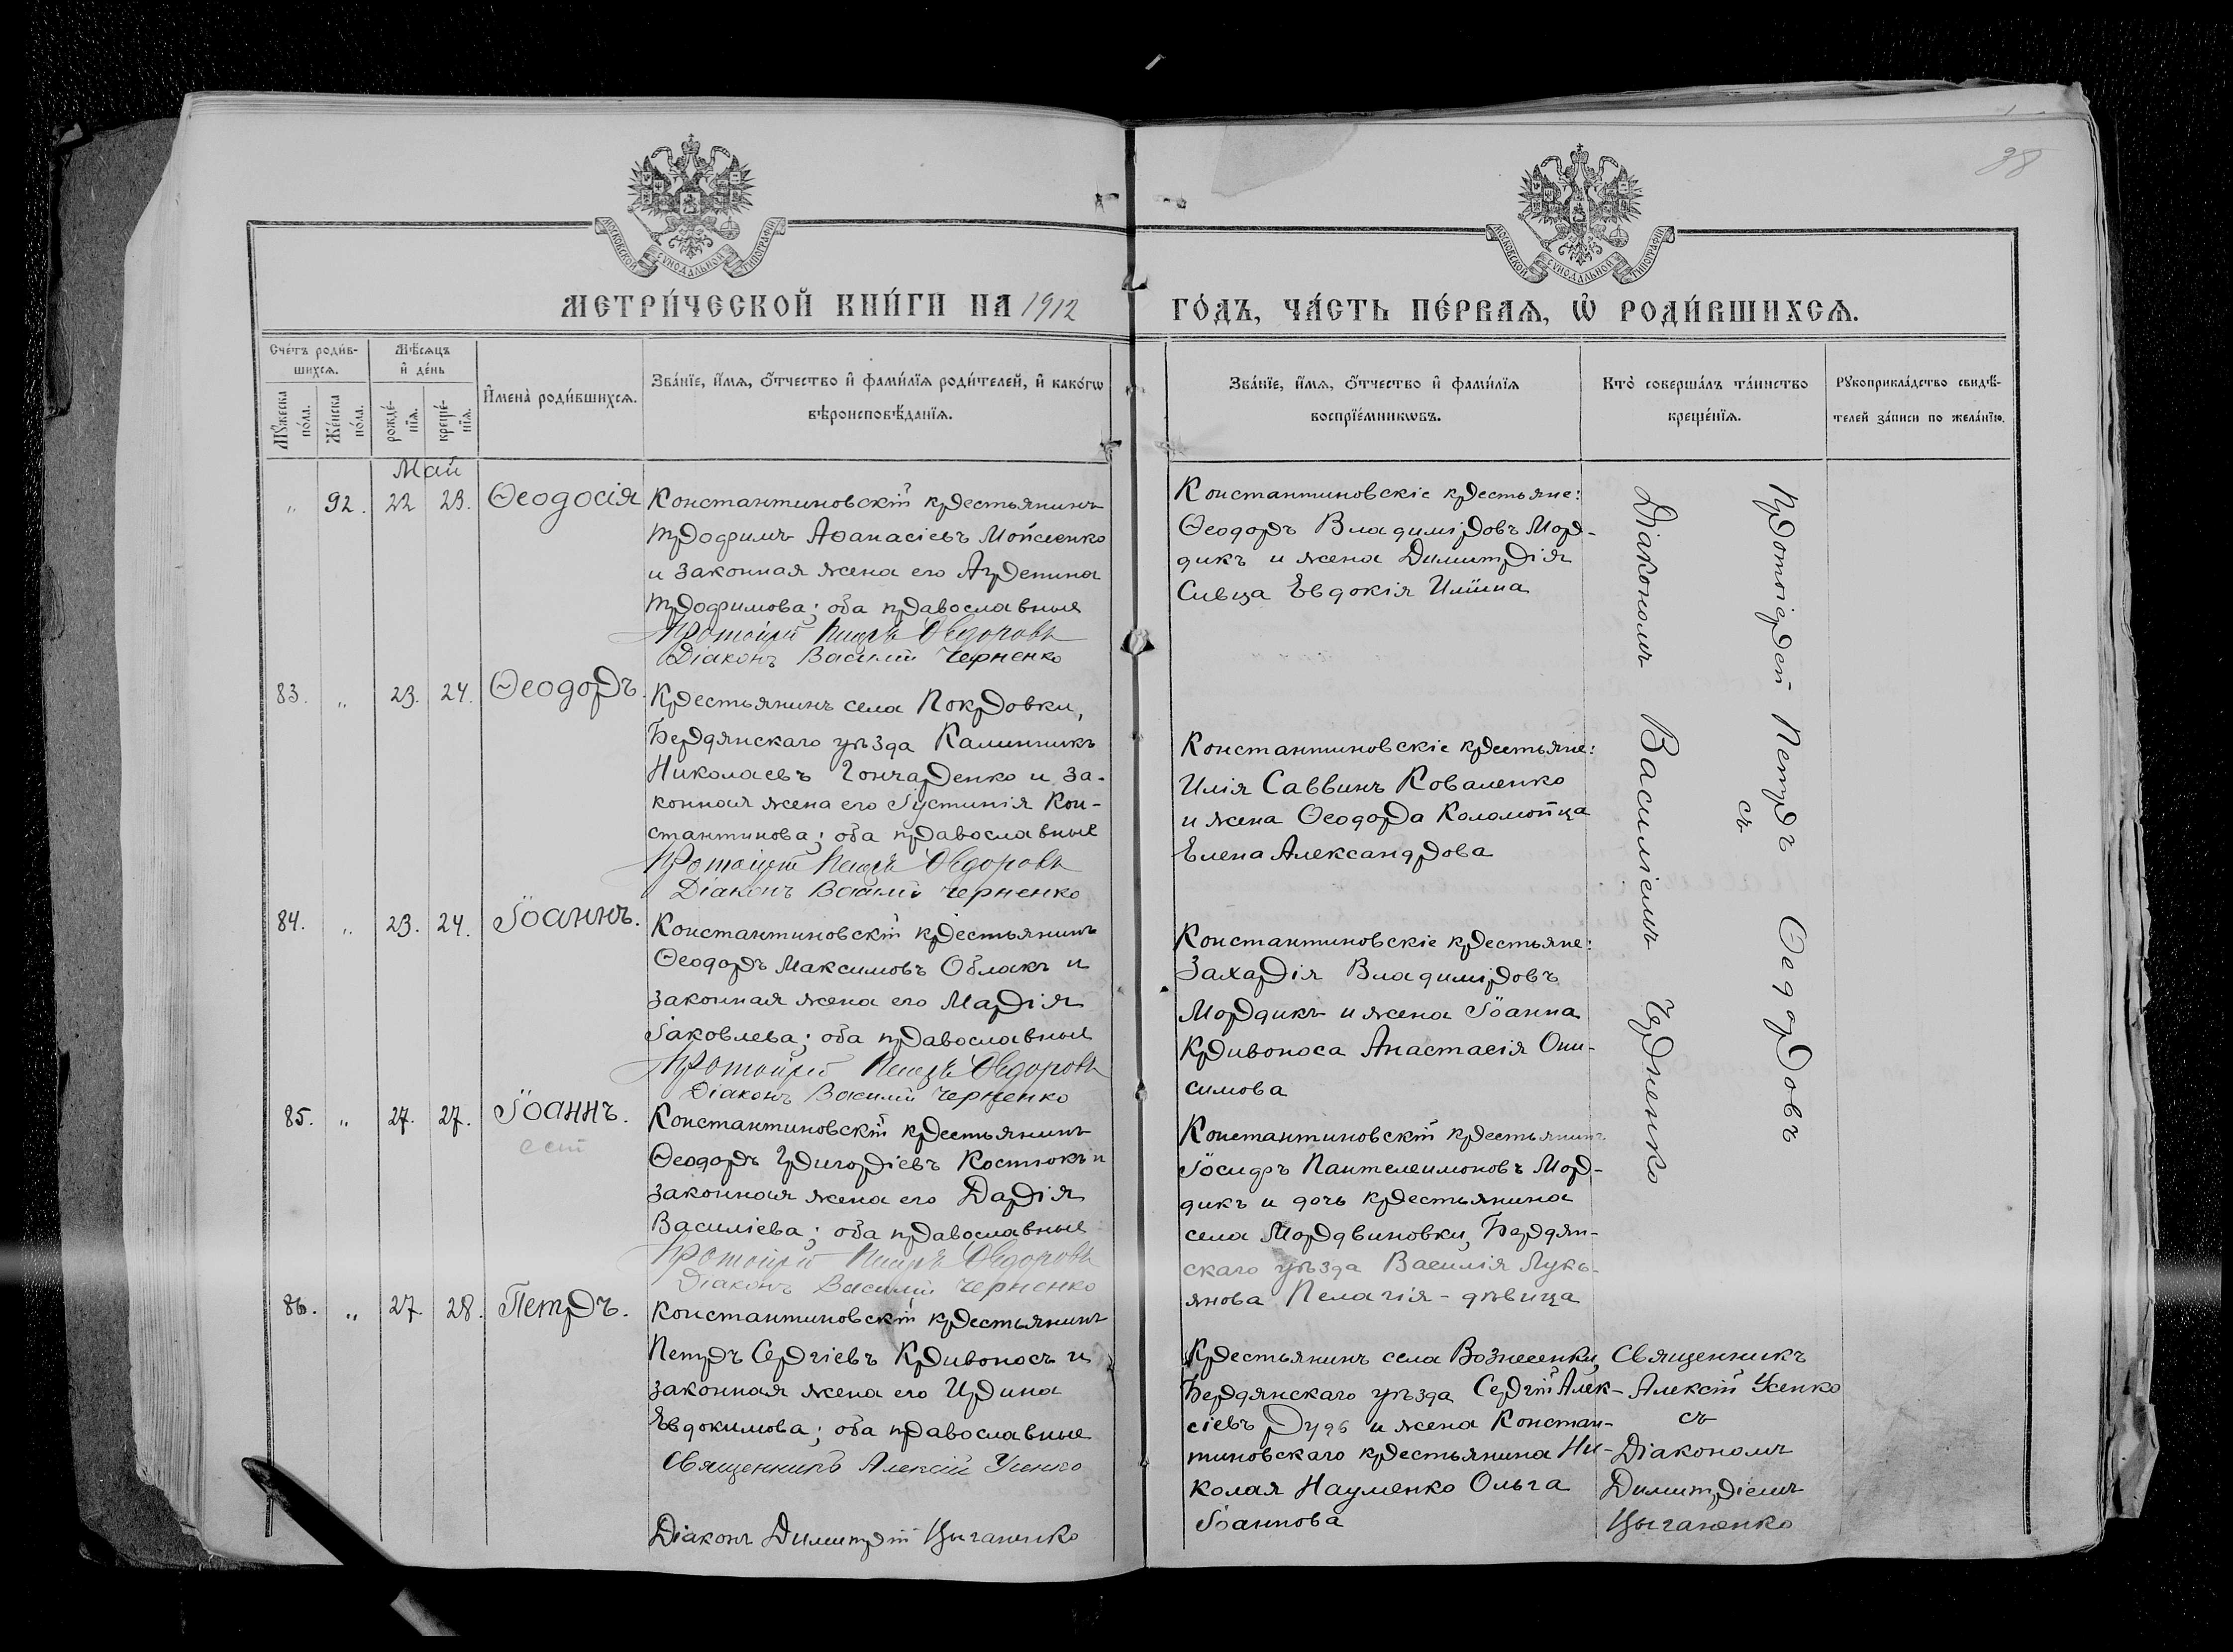 38
МОСКОВСКОЙ СѴНОДАЛЬНОЙ ТИПОГРАФІИ
МОСКОВСКОЙ СѴНОДАЛЬНОЙ ТИПОГРАФІИ
МЕТРИ́ЧЕСКОЙ КНИ́ГИ НА 1912 ГО́ДЪ, ЧА́СТЬ ПЕ́РВАѦ, Ѡ҆ РОДИ́ВШИХСѦ.
Сче́тъ роди́в-
шихсѧ.
Мꙋ́жеска
по́ла.
Же́нска
по́ла.
Мѣ́сѧцъ
и҆ де́нь
рожде́-
нїѧ.
креще́-
нїѧ.
И҆мена̀ роди́вшихсѧ.
Зва́нїе, и҆́мѧ, ѻ҆́тчество и҆ фами́лїѧ роди́телей, и҆ како́гѡ
вѣроисповѣ́данїѧ.
Зва́нїе, и҆́мѧ, ѻ҆́тчество и҆ фами́лїѧ
воспрїе́мникѡвъ.
Кто̀ соверша́лъ та́инство
креще́нїѧ.
Рꙋкоприкла́дство свидѣ́-
телей за́писи по жела́нїю.
Май
„ 92. 22 23. Ѳеодосія
Константиновскій крестьянинъ
Трофимъ Аѳанасіевъ Мойсеенко
и законная жена его Агрепина
Трофимова; оба православные
Протоіерей Петръ Ѳедоровъ
Діаконъ Василій Черненко
Константиновскіе крестьяне:
Ѳеодоръ Владиміровъ Мор-
дикъ и жена Димитрія
Сивца Евдокія Иліина
Протоіерей Петръ Ѳеодоровъ
съ
Діакономъ Василіемъ Черненко
83. „ 23. 24. Ѳеодоръ.
Крестьянинъ села Покровки,
Бердянскаго уѣзда Калинникъ
Николаевъ Гончаренко и за-
конная жена его Іустинія Кон-
стантинова; оба православные
Протоіерей Петръ Ѳедоровъ
Діаконъ Василій Черненко
Константиновскіе крестьяне:
Илія Саввинъ Коваленко
и жена Ѳеодора Коломойца
Елена Александрова
84. „ 23. 24. Іоаннъ.
Константиновскій крестьянинъ
Ѳеодоръ Максимовъ Облакъ и
законная жена его Марія
Іаковлева; оба православные
Протоіерей Петръ Ѳедоровъ
Діаконъ Василій Черненко
Константиновскіе крестьяне:
Захарія Владиміровъ
Мордикъ и жена Іоанна
Кривоноса Анастасія Они-
симова
85. „ 27. 27. Іоаннъ.
Константиновскій крестьянинъ
Ѳеодоръ Григоріевъ Костюкъ и
законная жена его Дарія
Василіева; оба православные
Протоіерей Петръ Ѳедоровъ
Діаконъ Василій Черненко
Константиновскій крестьянинъ
Іосифъ Пантелеимоновъ Мор-
дикъ и дочь крестьянина
села Мордвиновки, Бердян-
скаго уѣзда Василія Лукь-
янова Пелагія - дѣвица
86. „ 27. 28. Петръ.
Константиновскій крестьянинъ
Петръ Сергіевъ Кривоносъ и
законная жена его Ирина
Евдокимова; оба православные
Священникъ Алексій Усенко
Діаконъ Димитрій Цыганенко
Крестьянинъ села Вознесенки,
Бердянскаго уѣзда Сергій Алек-
сіевъ Дудь и жена Констан-
тиновскаго крестьянина Ни-
колая Науменко Ольга
Іоаннова
Священникъ
Алексій Усенко
съ
Діакономъ
Димитріемъ
Цыганенко